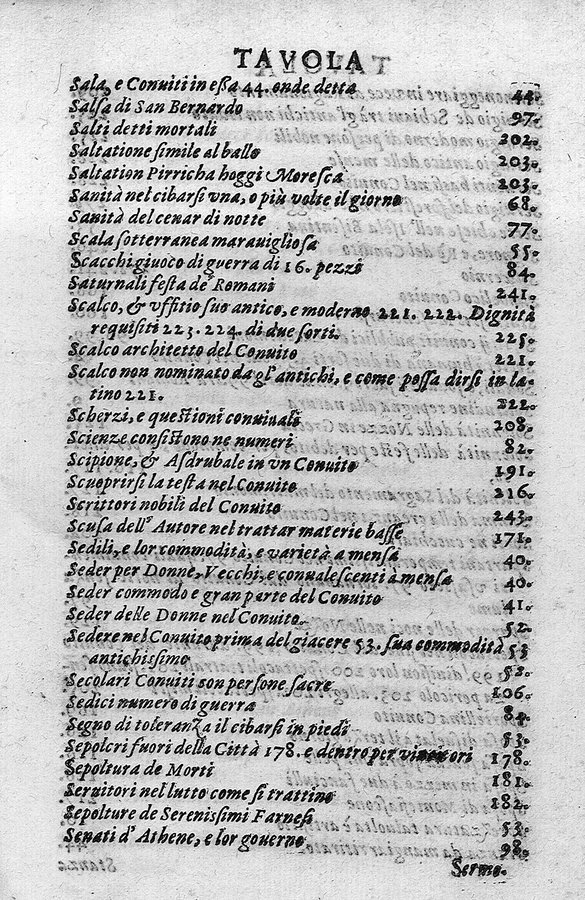 TAVOLA
Sala, e Conuiti in eßa 44. onde detta 44.
Salſa di San Bernardo 97.
Salti detti mortali 202.
Saltatione ſimile al ballo 203.
Saltation Pirricha hoggi Moreſca 203.
Sanità nel cibarſi vna, o più volte il giorno 68.
Sanità del cenar di notte 77.
Scala ſotterranea marauiglioſa 55.
Scacchi giuoco di guerra di 16. pezzi 84.
Saturnali feſta de' Romani 241.
Scalco, & vffitio ſuo antico, e moderno 221. 222. Dignità
requiſiti 223. 224. di due ſorti. 225.
Scalco architetto del Conuito 221.
Scalco non nominato da gl'antichi, e come poſſa dirſi in la-
tino 221. 222.
Scherzi, e queſtioni conuiuali 208.
Scienze conſiſtono ne numeri 82.
Scipione, & Aſdrubale in vn Conuito 191.
Scuoprirſi la teſta nel Conuito 216.
Scrittori nobili del Conuito 243.
Scuſa dell' Autore nel trattar materie baſſe 171.
Sedili, e lor commodità, e varietà a menſa 40.
Seder per Donne, Vecchi, e conualeſcenti à menſa 40.
Seder commodo e gran parte del Conuito 41.
Seder delle Donne nel Conuito. 52.
Sedere nel Conuito prima del giacere 53. ſua commodità 53
antichiſſimo 52.
Secolari Conuiti ſon perſone ſacre 106.
Sedici numero di guerra 84.
Segno di toleranza il cibarſi in piedi 53.
Sepolcri fuori della Città 178. e dentro per 178.
Sepoltura de Morti 181.
Seruitori nel lutto come ſi trattino 182.
Sepolture de Sereniſſimi Farneſi 53.
Senati d'Athene, e lor gouerno 98.
Sermo.